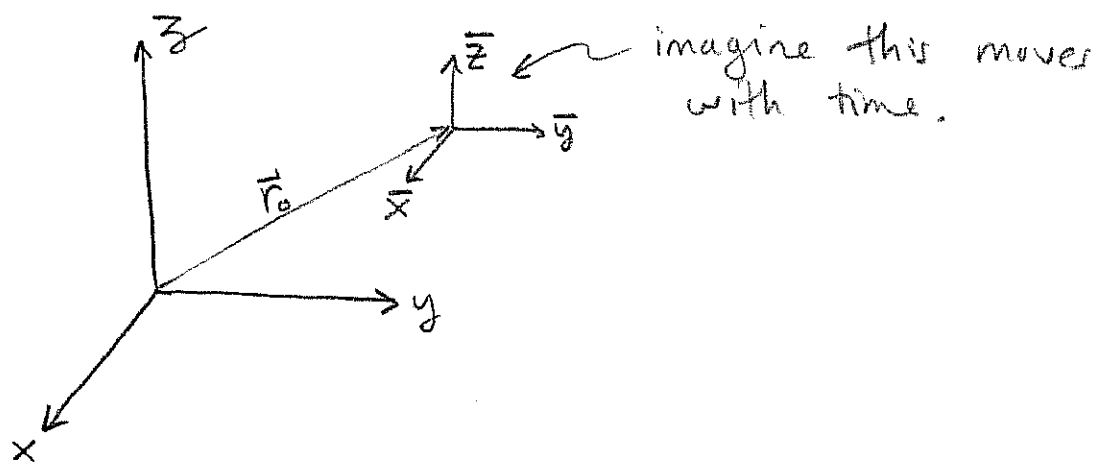 z
z̅ imagine this moves
with time.
y̅
x̅
r⃗₀
y
x